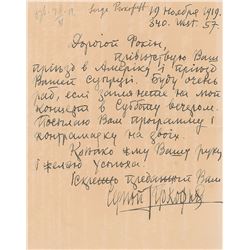 Serge Prokofieff
19 Ноября 1919.
340. West 57.
Дорогой Фокин,
Приветствую Ваш
приезд в Америку и приезд
Вашей Супруги. Буду очень
рад, если заглянете на мой
концерт в Субботу вечером.
Посылаю Вам программу и
контрамарку на двоих.
Крепко жму Вашу руку
и желаю успеха.
Искренно преданный Вам
Сергей Прокофьев